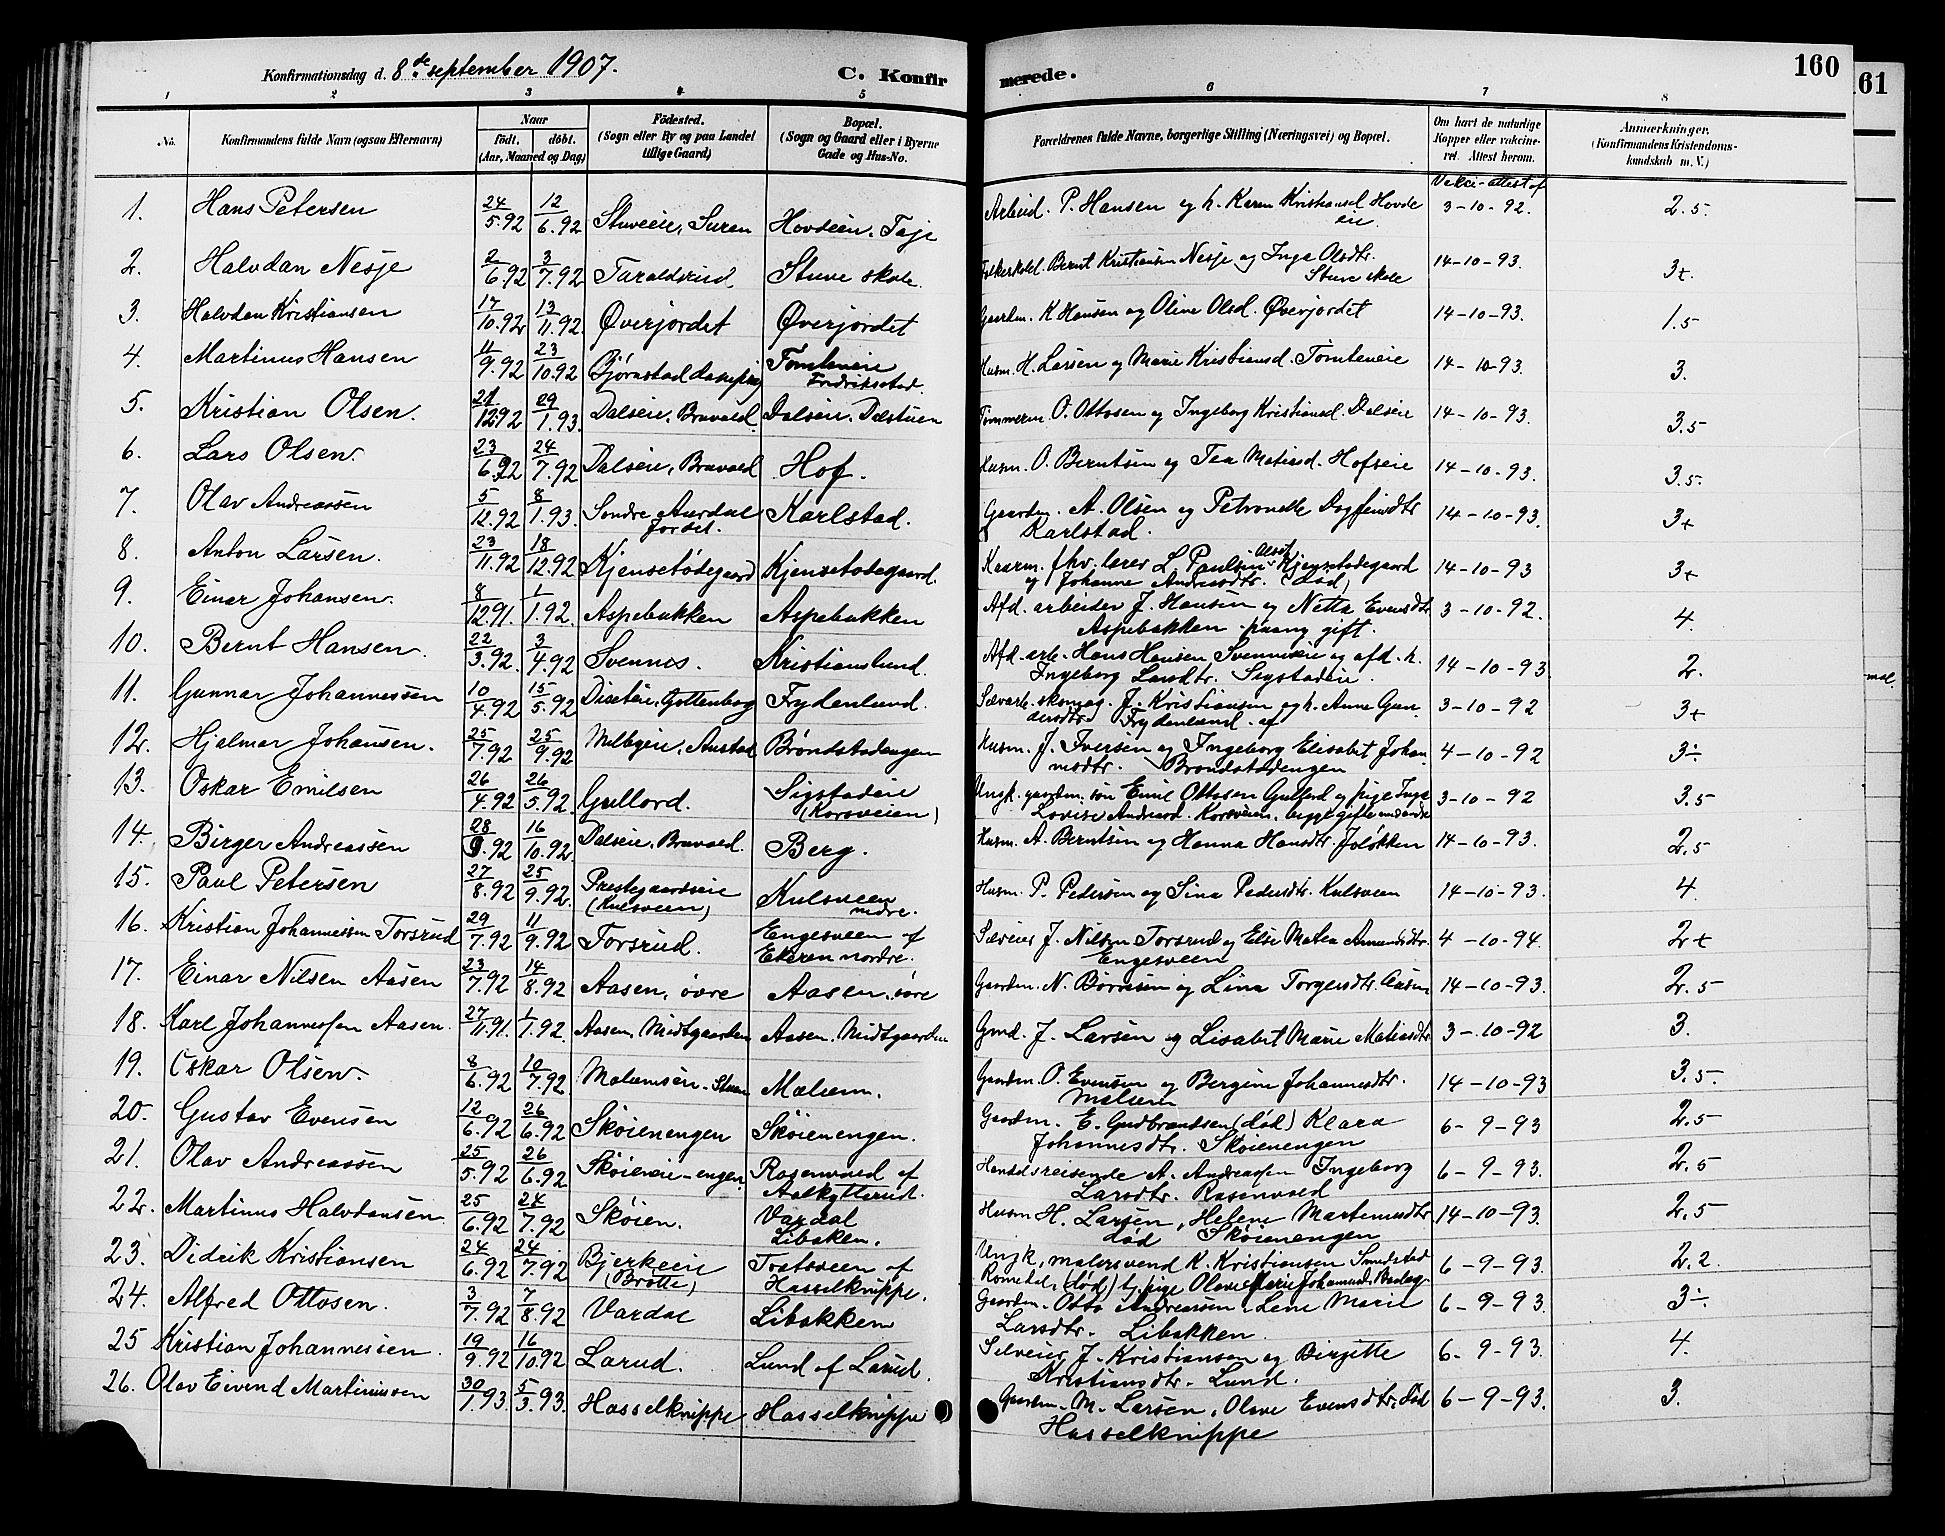 160
61
Konfirmationsdag d. 8de september 1907. C. Konfirmerede.
1 2 3 4 5 6 7 8
No. Konfirmandens fulde Navn (ogsaa Efternavn) Naar født. døbt. (Aar, Maaned og Dag) Fødested. (Sogn eller By og paa Landet tillige Gaard) Bopæl. (Sogn og Gaard eller i Byerne Gade og Hus-No. Forældrenes fulde Navne, borgerlige Stilling (Næringsvei) og Bopæl. Om havt de naturlige Kopper eller vakcineret. Attest herom. Anmærkninger. (Konfirmandens Kristendomskundskab m. V.)
Vakci-attest af
1. Hans Petersen 24/5.92 12/6.92 Stuveeie, Suren Hovdeien. Arbeid. P. Hansen og h. Karen Kristiansd. Hovdeeie. 3-10-92. 2.5.
2. Halvdan Nesje 2/6.92 3/7.92 Taraldsrud Stuve skole. Bernt Kristiansen Nesje og Inga Olsdtr. Stuve skole 14-10-93. 3+
3. Halvdan Kristiansen 17/10.92 13/11.92 Øverjordet Øverjordet Gaardm. K. Hansen og Oline Olsd. Øverjordet 14-10-93. 1.5
4. Martinus Hansen 11/9.92 23/10.92 Bjørnstad Tømteeie Fredrikstad. Husm. H. Larsen og Marie Kristiansd. Tømteeie 14-10-93. 3.
5. Kristian Olsen. 21/12 92 29/1.93. Dalseie, Bravald. Dalseie, Dæstuen Tømmerm. O. Ottosen og Ingeborg Kristiansd. Dalseie 14-10-93. 3.5
6. Lars Olsen. 23/6.92 24/7.92 Dalseie, Bravald Hof. Husm. O. Berntsen og Tea Matiasd. Hofseie 14-10-93. 3.5.
7. Olav Andreassen 5/12.92 8/1.93. Søndre Aurdal Jordet. Karlstad. Gaardm. A. Olsen og Petronelle Dagfinsdtr Karlstad. 14-10-93. 3+
8. Anton Larsen. 23/11.92 18/12.92 Kjensetødegaard Kjensetødegaard. fhv. lærer L. Paulsen Kjensetødegaard og Johanne Andreasdtr. (død) 14-10-93 3+
9. Einar Johansen. 8/12.91. 1/1.92. Aspebakken Aspebakken Afd. arbeider J. Hansen og Netta Evensdtr. Aspebakken paany gift. 3-10-92. 4.
10. Bernt Hansen. 22/3.92. 3/4.92 Svennes. Kristianslund. Afd. arb. Hans Hansen Svenneseie og afd. h. Ingeborg Larsdtr. Sigstadeie. 14-10-93. 2.
11. Gunnar Johannessen 10/4.92 15/5.92 Diseteie, Gottenborg Frydenlund. J. Kristiansen og h. Anne Gundersdtr. Frydenlund. 3-10-92 3+
12. Hjalmar Johansen. 25/7.92 25/9.92 Melbyeie, Austad Brøndstadengen Husm. J. Iversen og Ingeborg Elisabet Johansdtr. Brøndstadengen 4-10-92 3÷
13. Oskar Emilsen 26/4.92 26/5.92 Gullord. Sigstadeie (Korsveien) Ungk. gaardm. søn Emil Ottosen Gullord og pige Inga Lovise Andreasd. Korsveien, begge gifte med andre 3-10-92 3.5
14. Birger Andreassen 28/9.92 16/10.92 Dalseie, Bravald. Berg. Husm. A. Berntsen og Hanna Hansdtr. Joløkken 14-10-93. 2.5
15. Paul Petersen 27/8.92 25/9.92. Prestegaardseie (Kulsveen) Kulsveen nedre. Husm. P. Pedersen og Sina Pedersdtr. Kulsveen 14-10-93. 4.
16. Kristian Johannessen Torsrud 29/7.92 11/9.92 Torsrud. Engesveen af Ekeren nordre. Selveier J. Nilsen Torsrud og Else Matea Amundsdtr. Engesveen 4-10-94. 2+
17. Einar Nilsen Aasen 23/7.92 14/8.92 Aasen, øvre Aasen, øvre Gaardm. N. Børresen og Lina Torgersdtr. Aasen 14-10-93. 2.5
18. Karl Johannessen Aasen. 27/11.91. 1/1.92. Aasen, Midtgaarden Aasen, Midtgaarden Gmd. J. Larsen og Lisabet Marie Matiasdtr 3-10-92 3.
19. Oskar Olsen. 8/6.92 10/7.92. Malumsen. Mælum. Gaardm. O. Evensen og Bergine Johannesdtr. Mælum 14-10-93 3.5.
20. Gustav Evensen 12/6.92 26/6.92 Skøienengen Skøienengen. Gaardm. E. Gudbrandsen (død) Klara Johannesdtr. Skøienengen 6-9-93 2.5
21. Olav Andreassen 25/5.92 26/6.92 Skøieneie-engen Rosenvold af Aalkytterud. Handelsreisende A. Andreassen Ingeborg Larsdtr. Rosenvold 6-9-93. 2.5
22. Martinus Halvdansen 25/6.92 24/7.92 Skøien. Vardal Libakken. Husm H. Larsen, Helene Martinusdtr død Skøienengen 14-10-93. 2.5
23. Didrik Kristiansen 24/6.92 24/7.92 Bjerkeeie (Brøtte) Trætsveen af Hasselknippe. Ungk. malersvend K. Kristiansen Smedstad Romedal, (død) t. pige Olave Marie Johannesd. 6-9-93. 2.2
24. Alfred Ottosen. 3/7.92 7/8.92 Vardal Libakken Gaardm. Otto Andreassen, Lene Marie Larsdtr. Libakken. 6-9-93. 3÷
25 Kristian Johannessen. 19/9.92 16/10.92 Larud. Lund af Larud. Selveier J. Kristiansen og Birgitte Kristiansdtr. Lund. 6-9-93. 4.
26. Olav Eivend Martinusen 30/1.93. 5/3.93. Hasselknippe Hasselknippe Gaardm. M. Larsen, Olave Evensdtr. død Hasselknippe 6-9-93. 3.